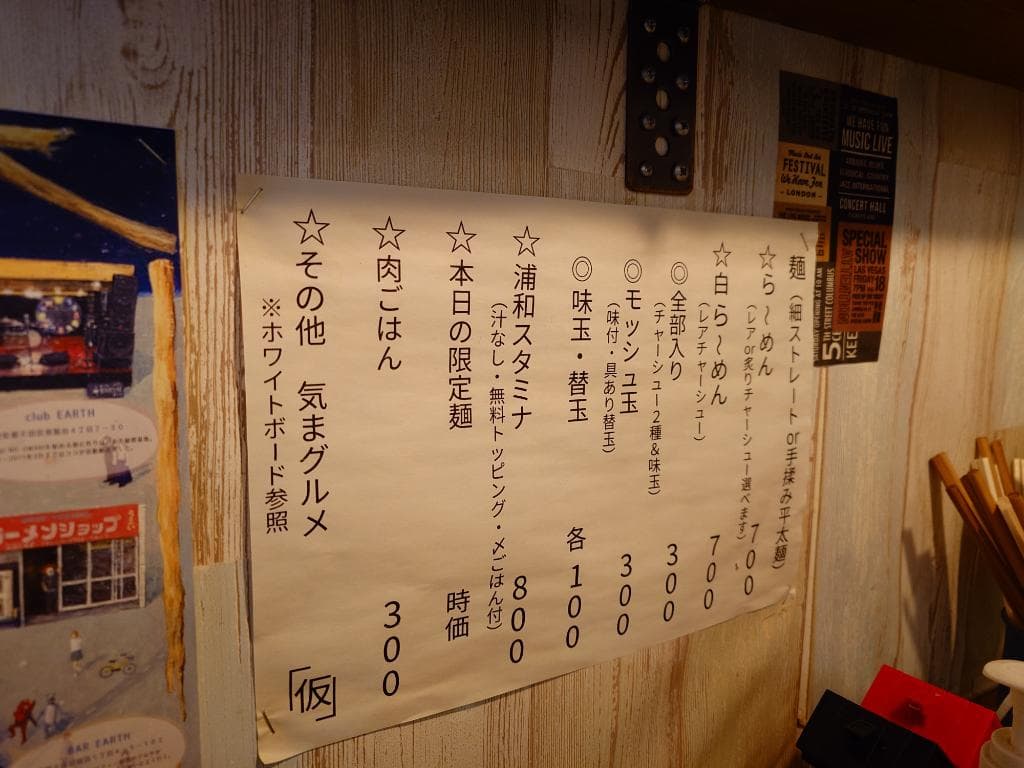 麺（細ストレート or手揉み平太麺）
☆ら～めん 700
（レアor炙りチャーシュー選べます）
☆白ら～めん 700
（レアチャーシュー）
◎全部入り 300
（チャーシュー2種&味玉）
◎モッシュ玉 300
（味付・具あり替玉）
◎味玉・替玉 各100
☆浦和スタミナ 800
（汁なし・無料トッピング・〆ごはん付）
☆本日の限定麺 時価
☆肉ごはん 300
☆その他 気まグルメ
※ホワイトボード参照
「仮」
WE HAVE FUN
MUSIC LIVE
CONCERT HALL
FESTIVAL
We Have Fun
LONDON
SPECIAL
SHOW
LAS VEGAS
FRIDAY 18
KEE
club EARTH
ーメンショップ
BAR EARTH